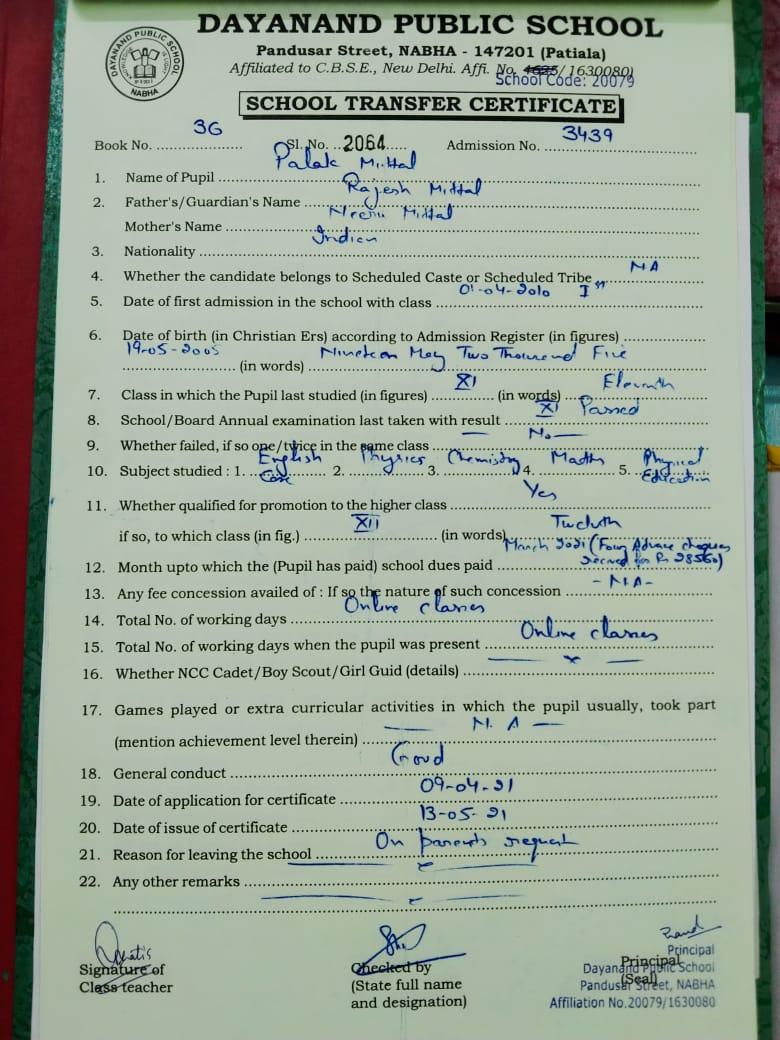 DAYANAND PUBLIC SCHOOL
Pandusar Street, NABHA - 147201 (Patiala)
Affiliated to C.B.S.E., New Delhi. Affi. No. 4625/1630080)
School Code: 20079
DAYANAND PUBLIC SCHOOL
NABHA
SCHOOL TRANSFER CERTIFICATE
Book No. 36 Sl. No. 2064 Admission No. 3439
1. Name of Pupil Palak Mittal
2. Father's/Guardian's Name Rajesh Mittal
Mother's Name Neenu Mittal
3. Nationality Indian
4. Whether the candidate belongs to Scheduled Caste or Scheduled Tribe NA
5. Date of first admission in the school with class 01-04-2010 Ist
6. Date of birth (in Christian Ers) according to Admission Register (in figures)
19-05-2005 (in words) Nineteen May Two Thousand Five
7. Class in which the Pupil last studied (in figures) XI (in words) Eleventh
8. School/Board Annual examination last taken with result XI Passed
9. Whether failed, if so one/twice in the same class — No —
10. Subject studied : 1. English Core 2. Physics 3. Chemistry 4. Maths 5. Physical Education
11. Whether qualified for promotion to the higher class Yes
if so, to which class (in fig.) XII (in words) Twelvth
12. Month upto which the (Pupil has paid) school dues paid March 2021 (Four Advance cheques
received for Rs 28560)
13. Any fee concession availed of : If so the nature of such concession - NA -
14. Total No. of working days Online classes
15. Total No. of working days when the pupil was present Online classes
16. Whether NCC Cadet/Boy Scout/Girl Guid (details) — x —
17. Games played or extra curricular activities in which the pupil usually, took part
(mention achievement level therein) — N.A —
18. General conduct Good
19. Date of application for certificate 09-04-21
20. Date of issue of certificate 13-05-21
21. Reason for leaving the school On parents request
22. Any other remarks
Signature of
Class teacher
Checked by
(State full name
and designation)
Principal
(Seal)
Principal
Dayanand Public School
Pandusar Street, NABHA
Affiliation No.20079/1630080